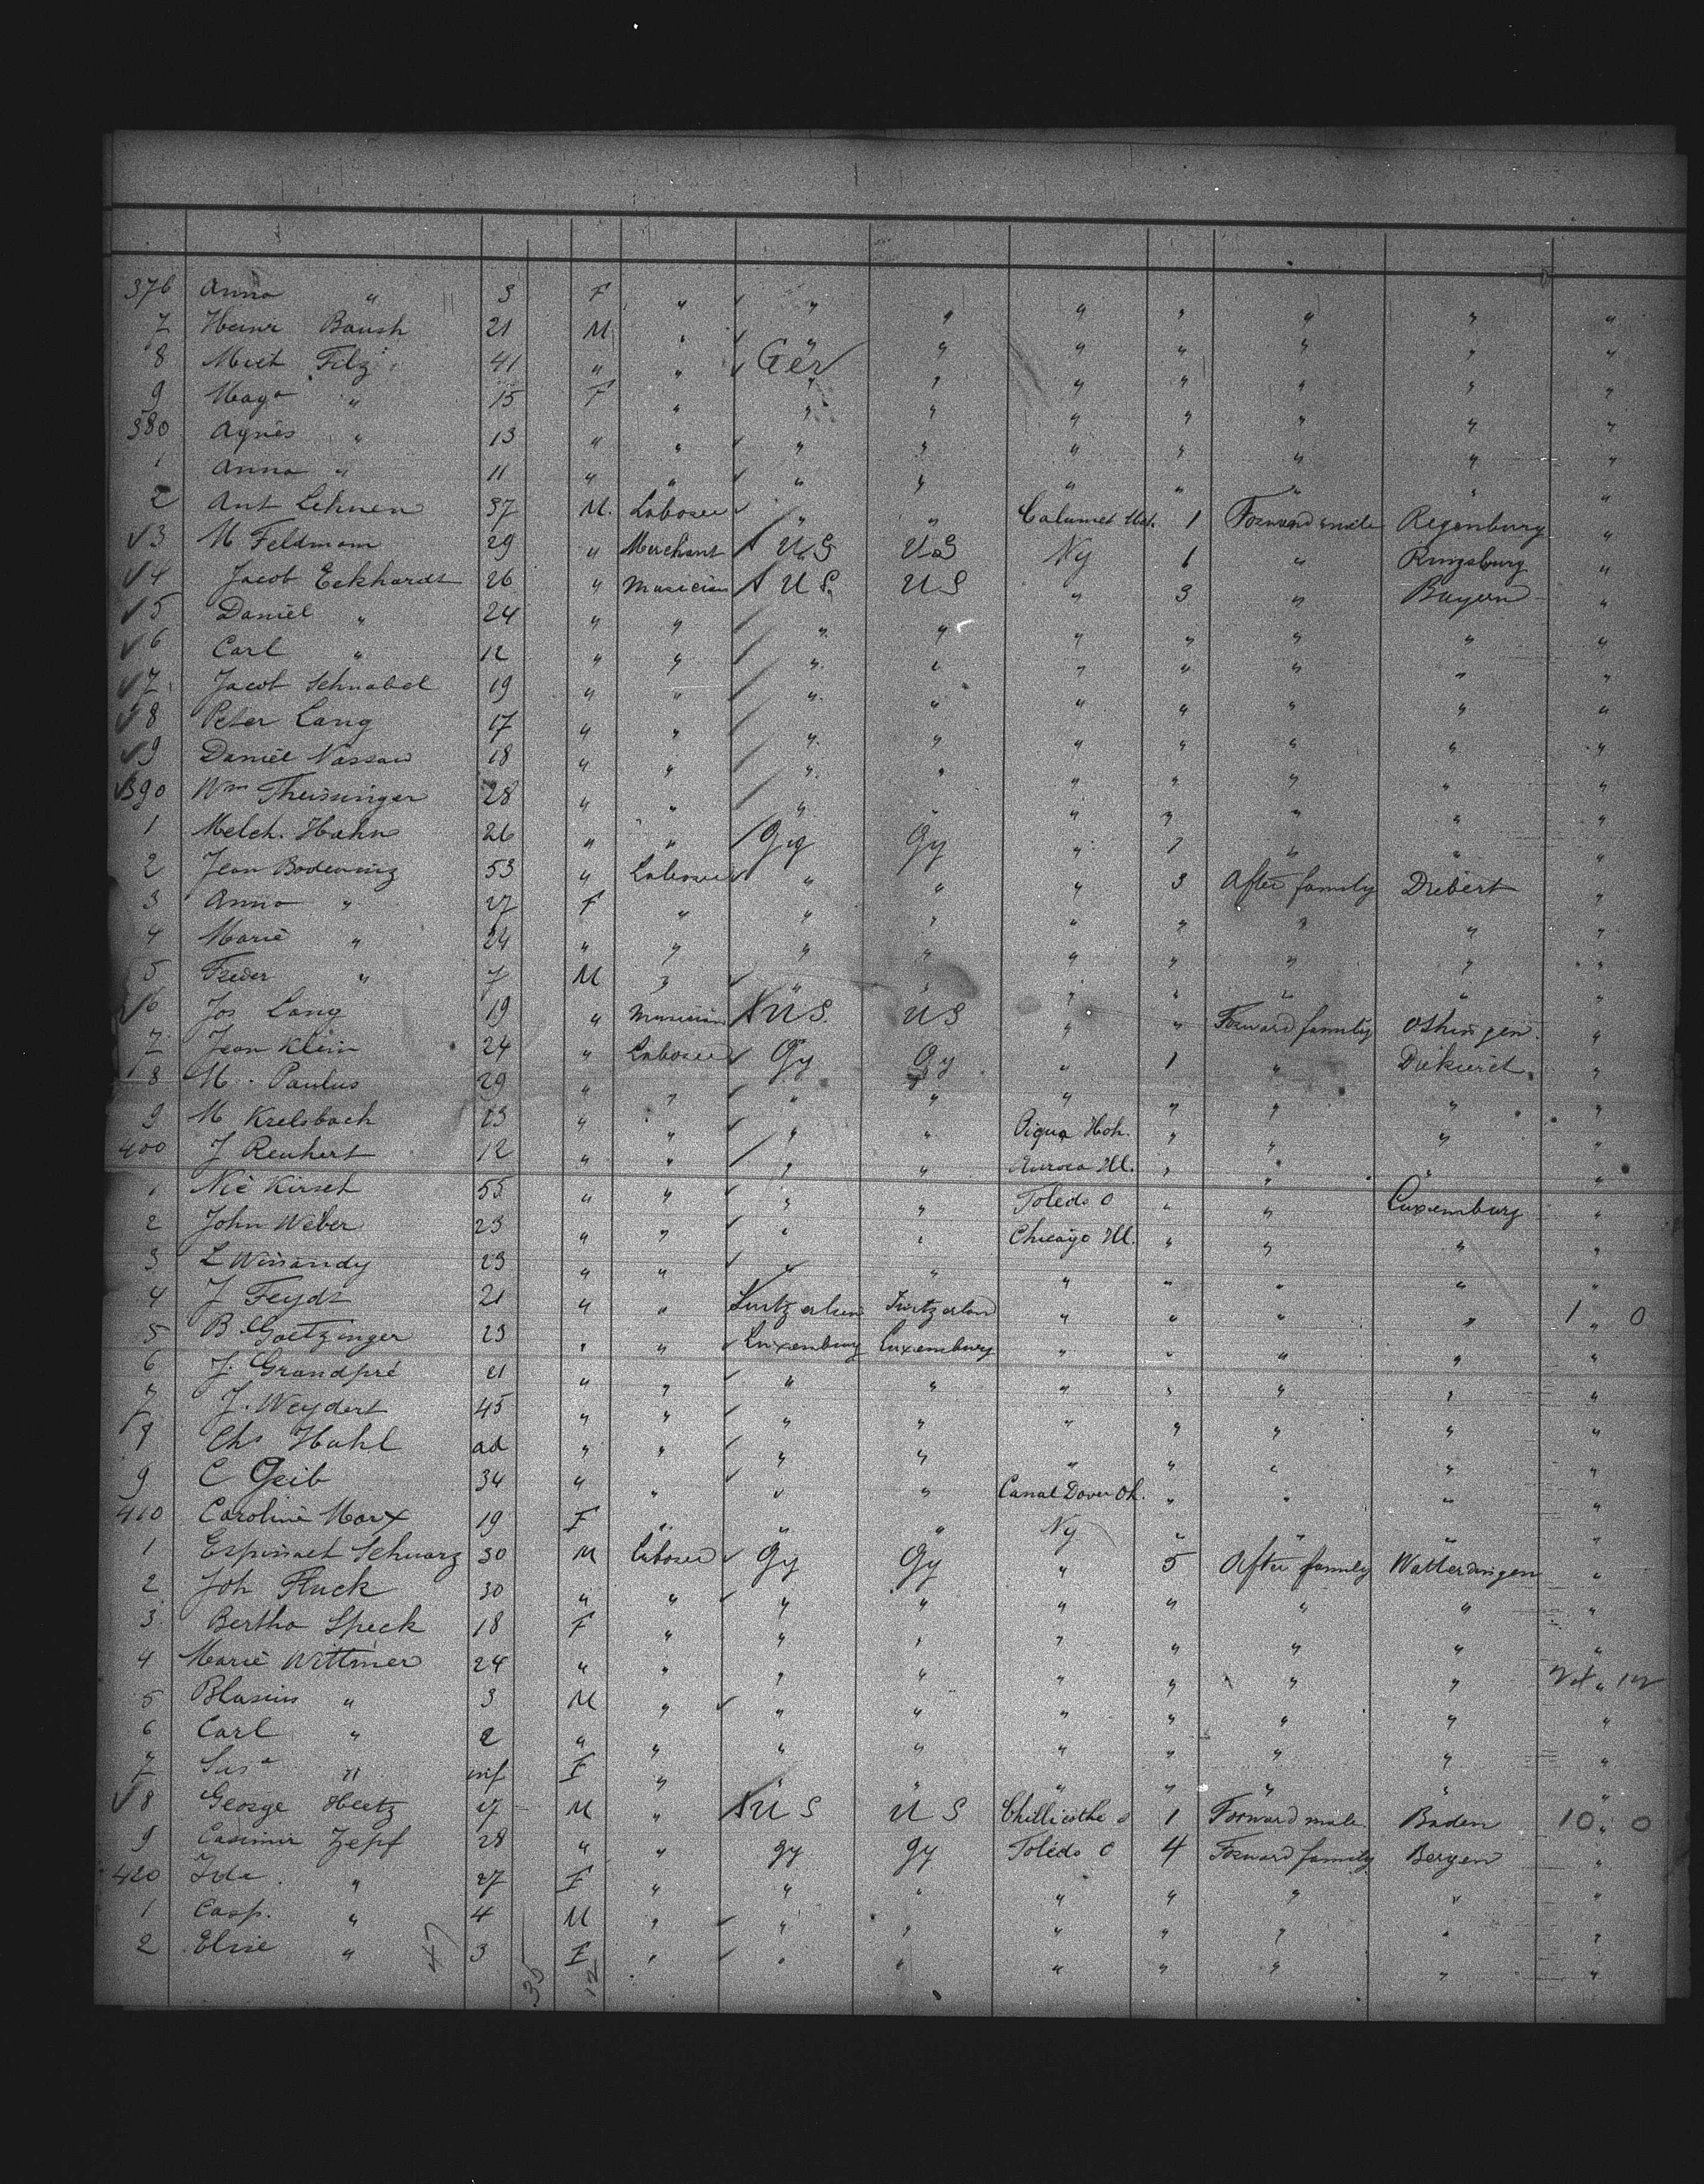 376 Anna " 3 F " " " " " " " "
7 Heinr Baush 21 M " " " " " " " "
8 Mich Filz 41 " " Ger " " " " " "
9 Marg a " 15 F " " " " " " " "
380 Agnes " 13 " " " " " " " " "
1 Anna " 11 " " " " " " " " "
2 Ant Lehnen 37 M. Laborer " " Calumet Mch. 1 Forward male Regenburg "
3 M Feldmann 29 " Merchant U.S U.S Ny 1 " "
4 Jacob Eckhardt 26 " Musician U S. U S " 3 " Bayern "
5 Daniel " 24 " " " " " " " " "
6 Carl " 12 " " " " " " " " "
7 Jacob Schnabel 19 " " " " " " " " "
8 Peter Lang 17 " " " " " " " " "
9 Daniel Nassau 18 " " " " " " " " "
390 Wm Theisinger 28 " " " " " " " " "
1 Melch. Hahn 26 " " Gy Gy " 1 " " "
2 Jean Bodewing 53 " Laborer " " " 3 After family Driebert "
3 Anna " 27 F " " " " " " " "
4 Marie " 24 " " " " " " " " "
5 Freder " 7 M " " " " " " " "
6 Jos Lang 19 " Musician U S. U S " " Forward family "
7 Jean Klein 24 " Laborer Gy Gy " 1 " Diekirch "
8 M. Paulus 29 " " " " " " " " "
9 M Krelsbach 23 " " " " Piqua " " " "
400 J Reuhert 12 " " " " Aurora Ill. " " " "
1 Nic Kirsch 55 " " " " Toledo O " " Luxemburg "
2 John Weber 23 " " " " Chicago Ill. " " " "
3 L Wirsandy 23 " " " " " " " " "
4 J Feydt 21 " " " " " " 1 " 0
5 B Goetzinger 23 " " Luxenburg Luxemburg " " " " "
6 J. Grandpré 21 " " " " " " " " "
7 J. Weydert 45 " " " " " " " " "
8 Chs Hahl ad " " " " " " " " "
9 C Geib 34 " " " " Canal Dover Oh. " " " "
410 Caroline Marx 19 F " " " Ny " " " "
1 Schwarz 30 M Laborer Gy Gy " 5 After family Watterdingen "
2 Joh Fluck 30 " " " " " " " " "
3 Bertha Speck 18 F " " " " " " " "
4 Marie Wittmer 24 " " " " " " " " "
5 Blasius " 3 M " " " " " " " "
6 Carl " 2 " " " " " " " " "
7 Sus a " inf F " " " " " " " "
8 George Heetz 27 M " U S U S Chillicothe o 1 Forward male Baden 10 " 0
9 Casimir Zepf 28 " " gy gy Toledo O 4 Forward family Bergen "
420 Ida " 27 F " " " " " " " "
1 Casp. " 4 M " " " " " " " "
2 Elise " 3 F " " " " " " " "
47 35 12